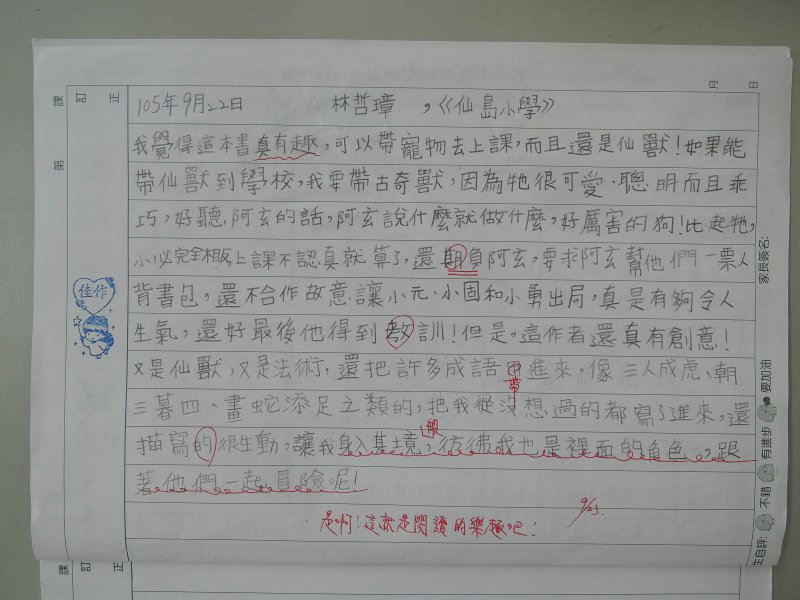 105年9月22日 林哲璋,《仙島小學》
我覺得這本書真有趣,可以帶寵物去上課,而且還是仙獸!如果能
帶仙獸到學校,我要帶古奇獸,因為牠很可愛、聰明而且乖
巧,好聽阿玄的話,阿玄說什麼就做什麼,好厲害的狗!比起牠,
小必完全相反上課不認真就算了,還期負阿玄,要求阿玄幫他們一票人
背書包,還不合作故意讓小元、小固和小勇出局,真是有夠令人
生氣,還好最後他得到教訓!但是,這作者還真有創意!
又是仙獸,又是法術,還把許多成語帶進來,像三人成虎、朝
三暮四、畫蛇添足之類的,把我從沒想過的都寫了進來,還
描寫的很生動,讓我身入其境,彷彿我也是裡面的角色,跟
著他們一起冒險呢!
是啊!這就是閱讀的樂趣吧!
9/23
第 課
訂 正
月 日
佳作
般
家長簽名:
生自評: 不錯 有進步 要加油
課
訂
正